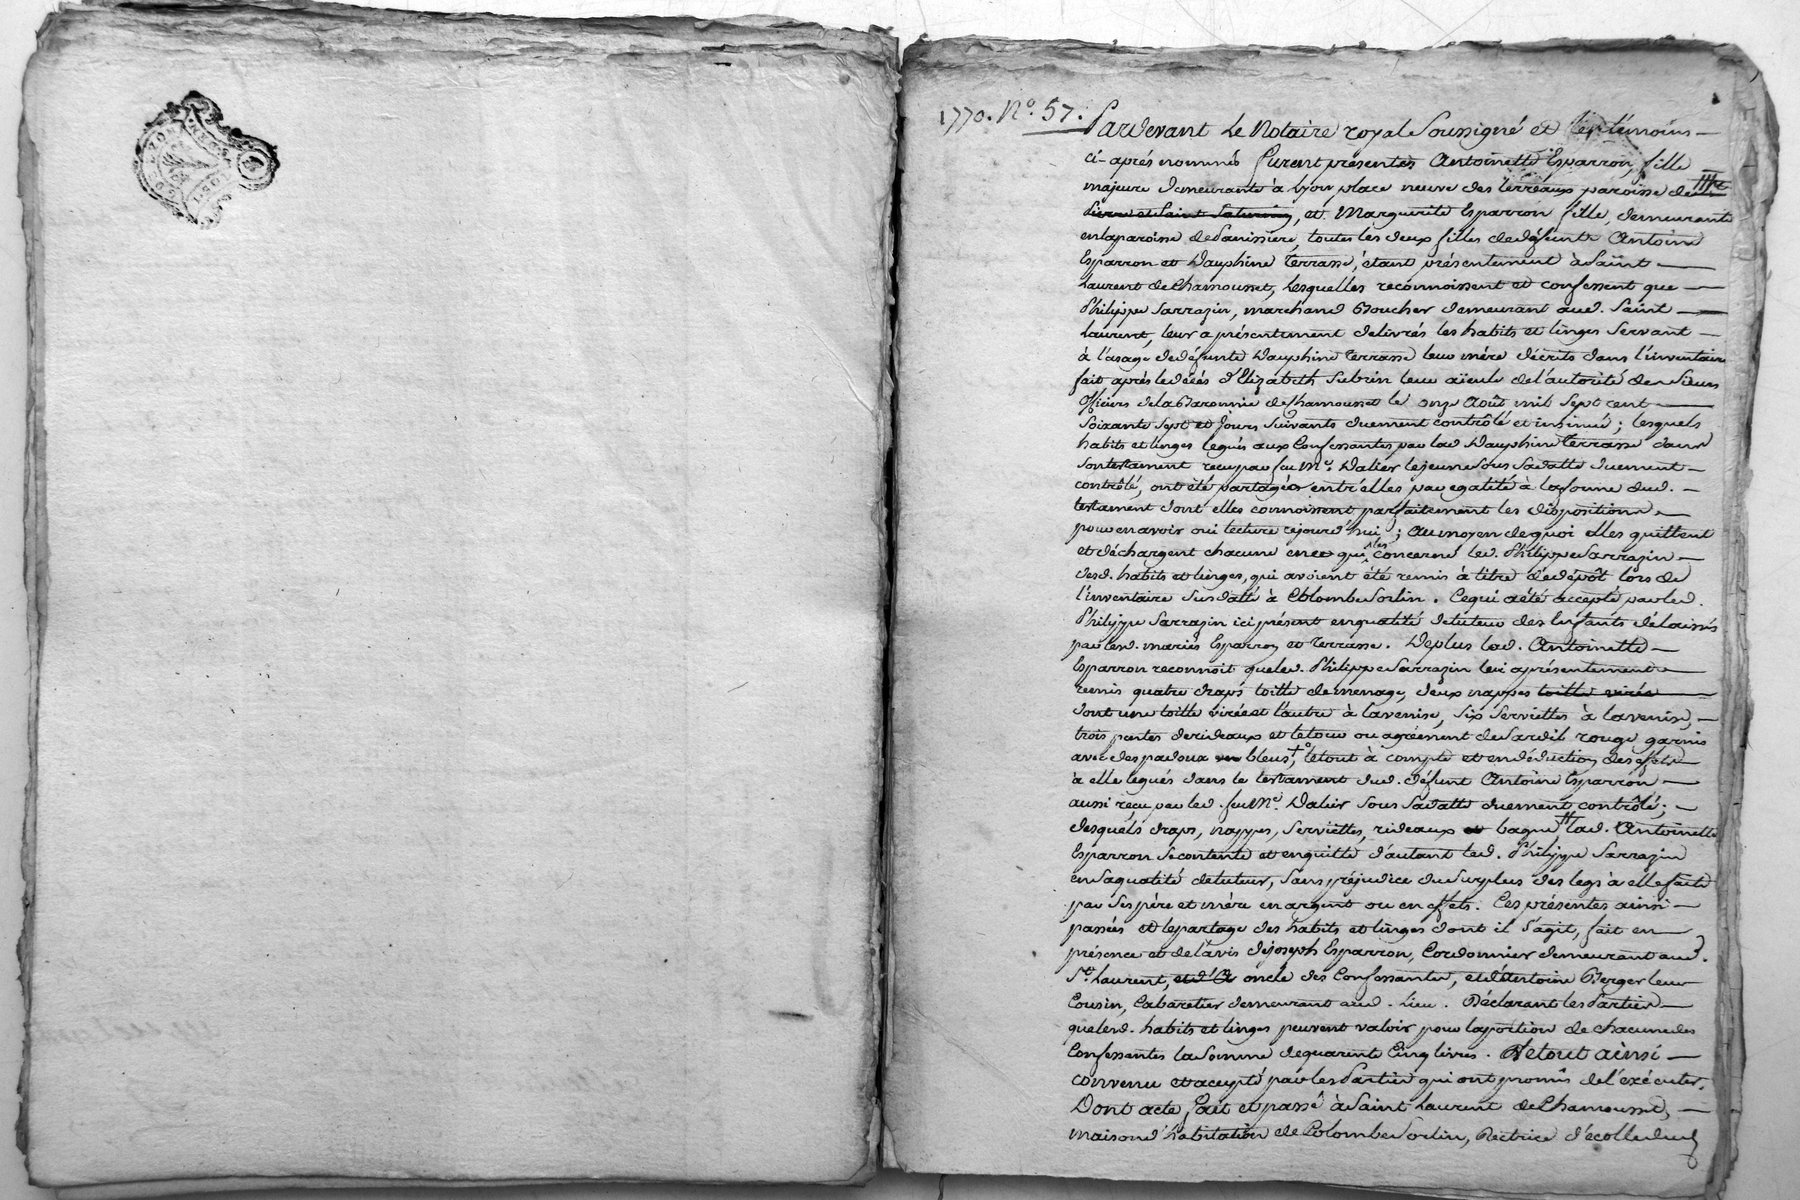 1770. N° 57.
Pardevant Le Notaire royal Soussigné et les témoins
ci-après nommés furent présentes Antoinette Esparron, fille
majeure demeurante à Lyon place neuve des terreaux paroisse de
Pierre et Saint Saturnin, et Marguerite Esparron fille, demeurante
en la paroisse de Panissiere, toutes les deux filles de défunts Antoine
Esparron et Dauphine Terrasse, étant présentement à Saint
Laurent de Chamousset, Lesquelles reconnoissent et confessent que
Philippe Sarrazin, marchand Boucher demeurant aud. Saint
Laurent, leur a présentement delivrés les habits et linges Servant
à l'usage de défunte Dauphine Terrasse leur mère décrits dans l'inventaire
fait après le décès d'Elizabeth Subrin leur aïeule de l'autorité de Sieurs
Officiers de la Baronnie de Chamousset le onze Août mil Sept cent
Soixante Sept et jours Suivants duement contrôlé et insinué ; lesquels
habits et linges legués aux Confessantes par lad. Dauphine Terrasse dans
Son testament reçu par feu Me. Dalier le jeune Sous Sa datte duement
contrôlé, ont été partagés entr'elles par egalité à la forme dud.
testament dont elles connoissent parfaitement les dispositions
pour en avoir oui lecture cejourd'hui ; au moyen de quoi elles quittent
et déchargent chacune en ce qui les concerne led. Philippe Sarrazin
desd. habits et linges, qui avoient été remis à titre de dépôt lors de
l'inventaire Susdatté à Colombe Sorlin. Ce qui a été accepté par led.
Philippe Sarrazin ici présent en qualité de tuteur des Enfants délaissés
par lesd. mariés Esparron et Terrasse. De plus lad. Antoinette
Esparron reconnoit que led. Philippe Sarrazin lui a présentement
remis quatre draps toille de menage, deux nappes toille virée
dont une toille virée et l'autre à la venise, Six Serviettes à la venise,
trois pentes de rideaux et le tour ou agrément de Sardit rouge garnis
avec des padoux bleus, le tout à compte et en déduction des effets
à elle legués dans le testament dud. défunt Antoine Esparron
aussi reçu par led. feu Me. Dalier Sous Sa datte duement contrôlé ;
desquels draps, nappes, Serviettes, rideaux et bague lad. Antoinette
Esparron Se contente et en quitte d'autant led. Philippe Sarrazin
en Sa qualité de tuteur, Sans préjudice du Surplus des legs à elle faits
par Ses père et mère en argent ou en effets. Ces présentes ainsi
passées et le partage des habits et linges dont il S'agit, fait en
présence et de l'avis de Joseph Esparron, Cordonnier demeurant aud.
St. Laurent, et d'A oncle des Confessantes, et d'Antoine Berger leur
Cousin, Cabaretier demeurant aud. Lieu. Déclarant les Parties
que lesd. habits et linges peuvent valoir pour la portion de chacune des
Confessantes la Somme de quarente Cinq livres. Le tout ainsi
convenu et accepté par les Parties qui ont promis de l'exécuter.
Dont acte fait et passé à Saint Laurent de Chamousset,
maison d'habitation de Colombe Sorlin, Rectrice d'ecolle dud.